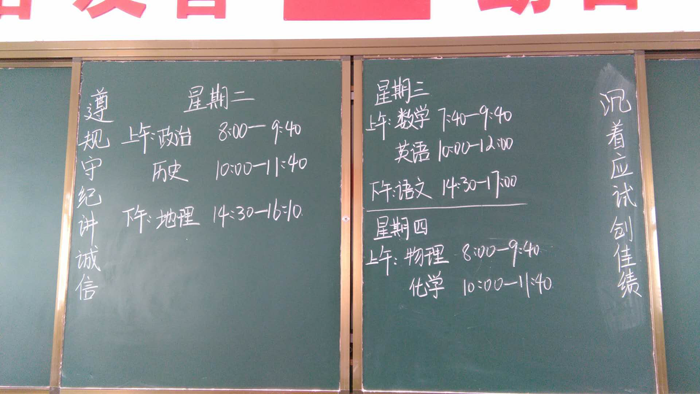 遵规守纪讲诚信
星期二
上午:政治 8:00—9:40
历史 10:00—11:40
下午:地理 14:30—16:10
星期三
上午:数学 7:40—9:40
英语 10:00—12:00
下午:语文 14:30—17:00
星期四
上午:物理 8:00—9:40
化学 10:00—11:40
沉着应试创佳绩